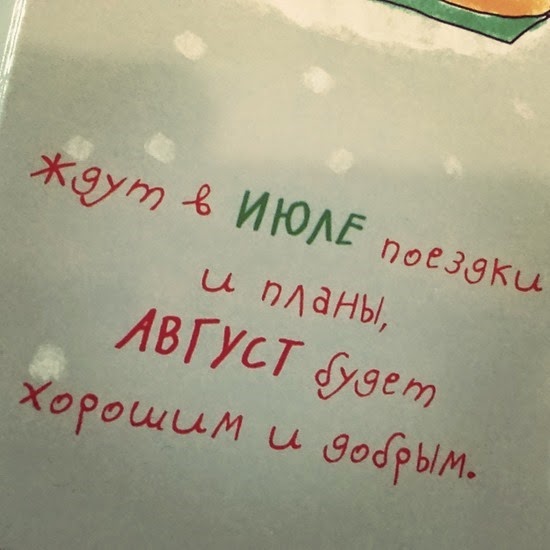 Ждут в ИЮЛЕ поездки
и планы,
АВГУСТ будет
хорошим и добрым.